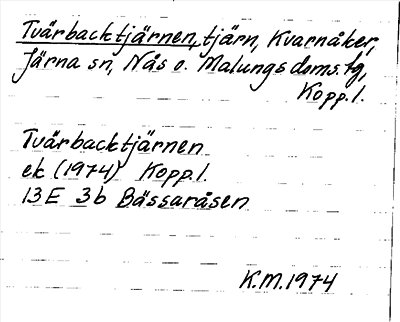 Tvärbacktjärnen, tjärn, Kvarnåker,
Järna sn, Nås o. Malungs doms. tg,
Kopp. l.
Tvärbacktjärnen
ek (1974) Kopp. l.
13E 3b Bässaråsen
K.M. 1974